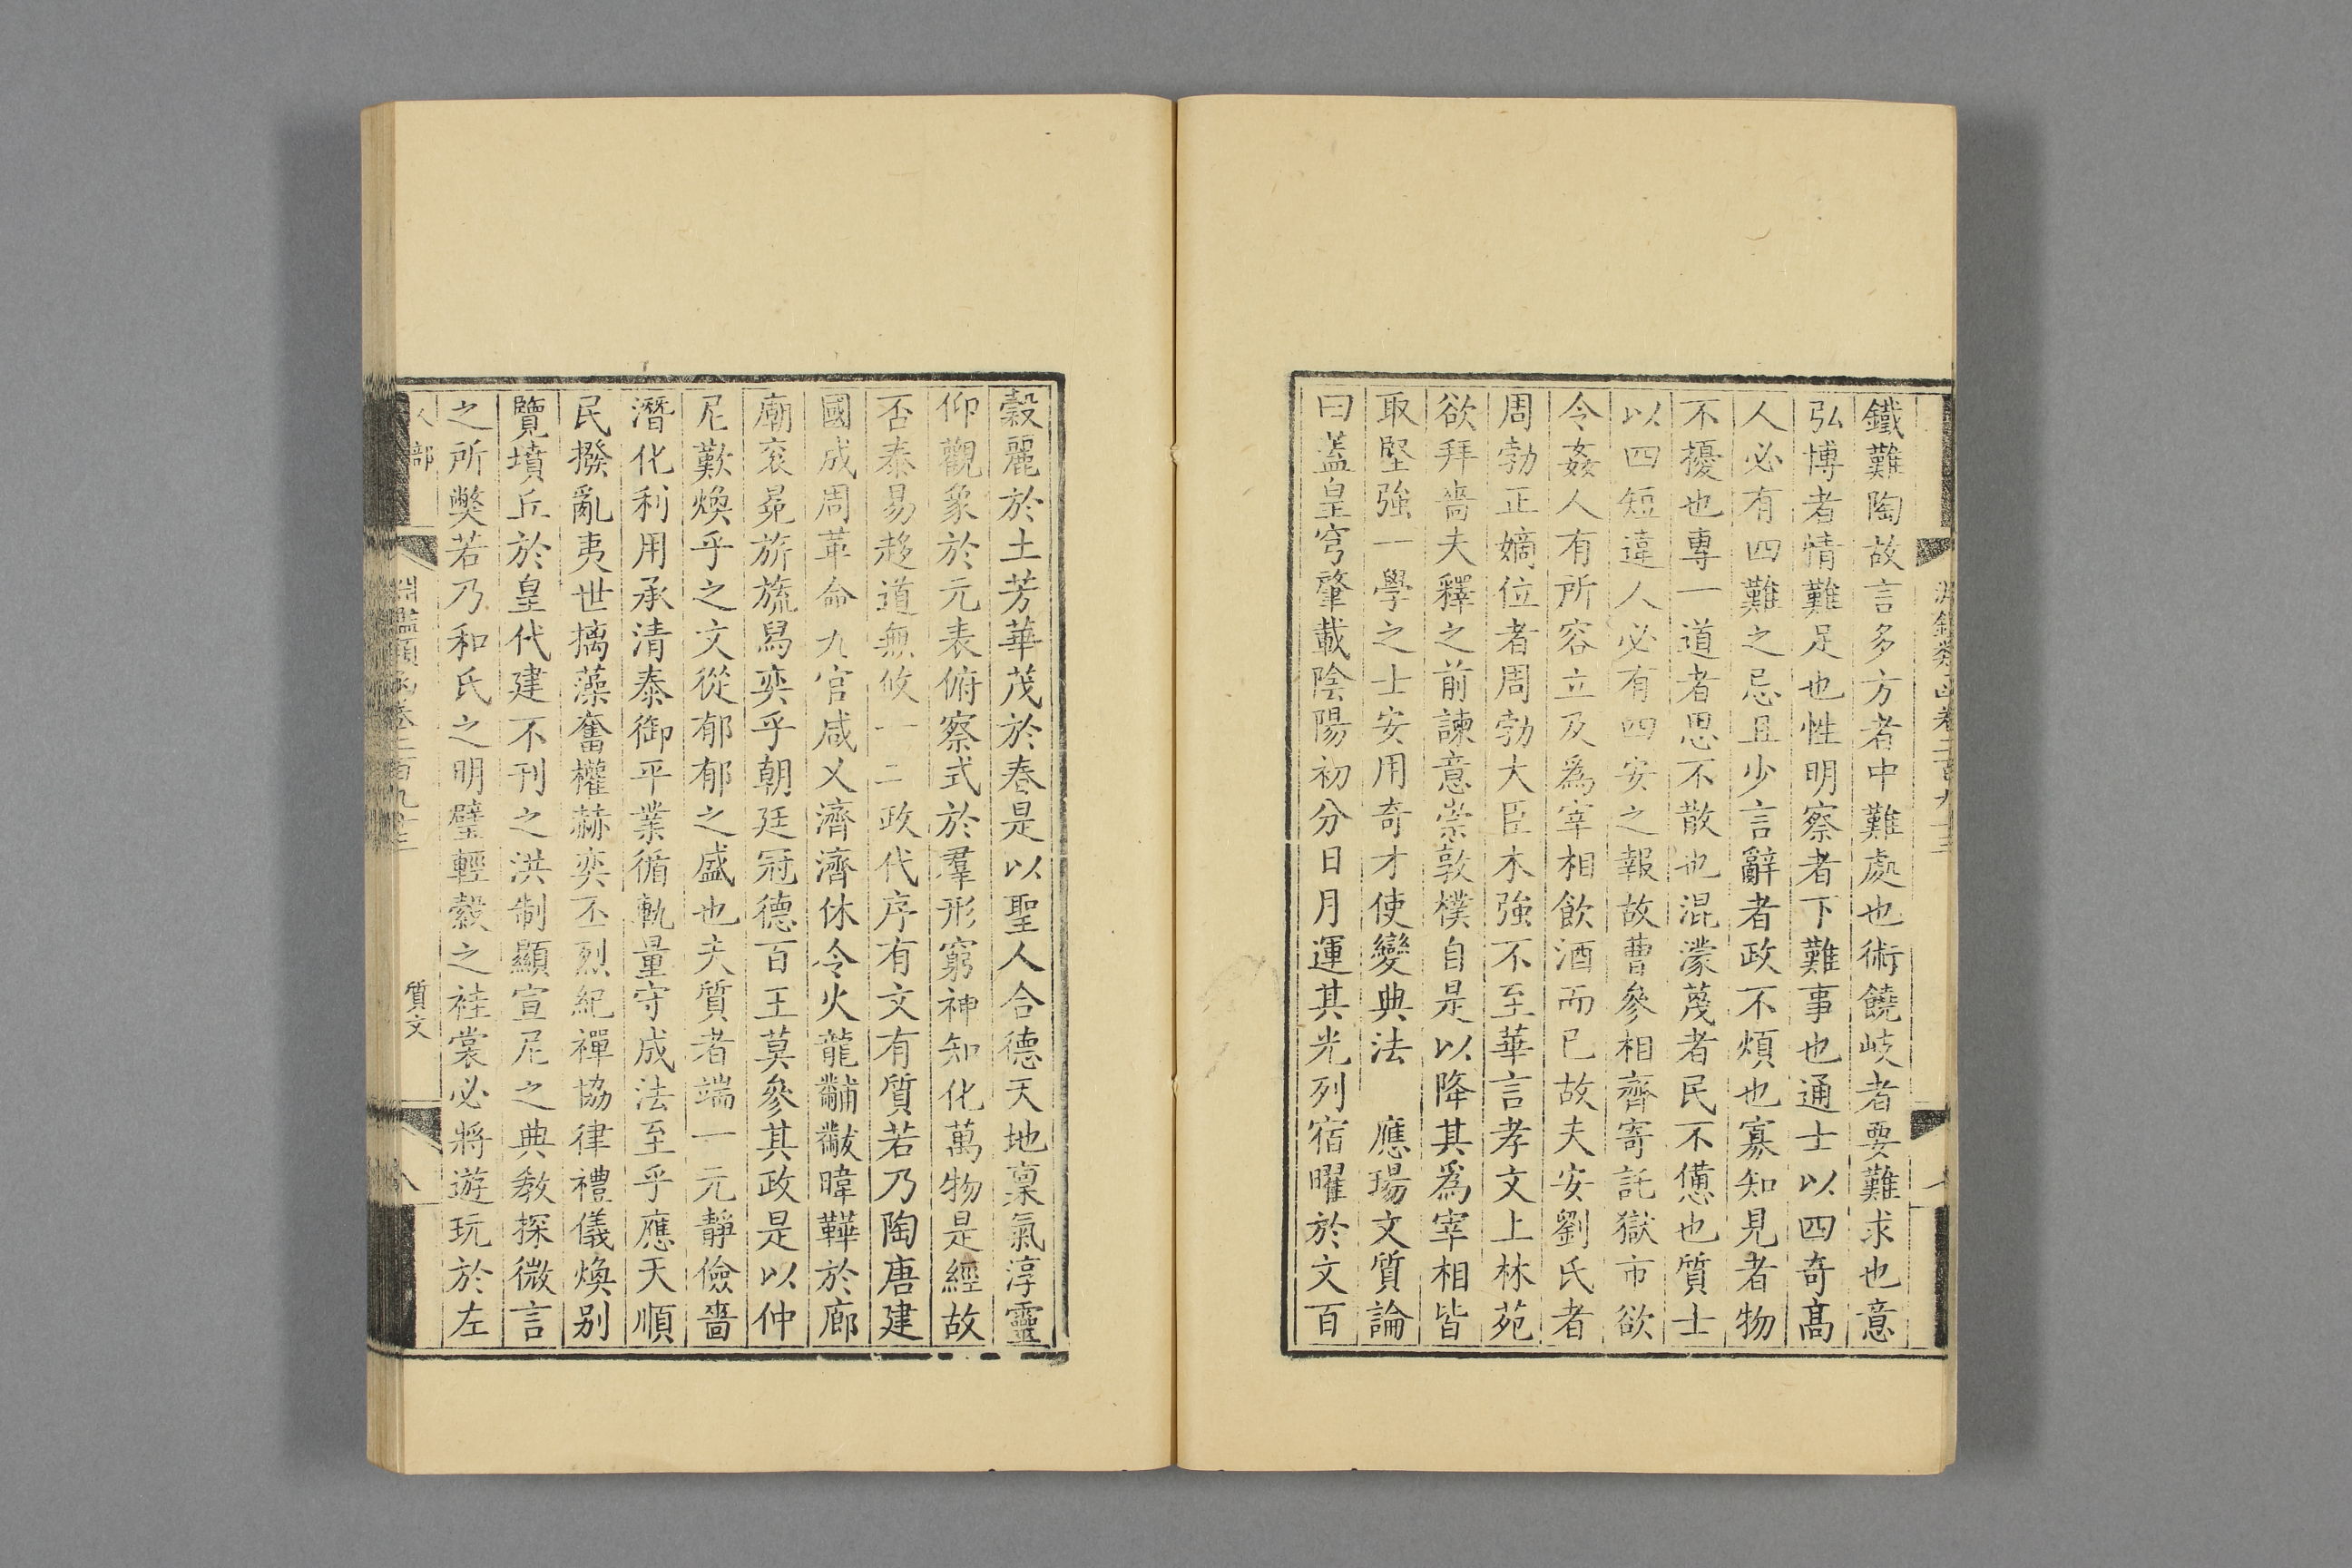 鐵難陶故言多方者中難處也術饒岐者要難求也意
弘博者情難足也性明察者下難事也通士以四奇高
人必有四難之忌且少言辭者政不煩也寡知見者物
不擾也專一道者思不散也混濛蔑者民不憊也質士
以四短違人必有四安之報故曹參相齊寄託獄市欲
令姦人有所容立及爲宰相飲酒而已故夫安劉氏者
周勃正嫡位者周勃大臣木強不至華言孝文上林苑
欲拜嗇夫釋之前諫意崇敦樸自是以降其爲宰相皆
取堅強一學之士安用奇才使變典法　應瑒文質論
曰蓋皇穹肇載陰陽初分日月運其光列宿曜於文百
穀麗於土芳華茂於春是以聖人合德天地稟氣淳靈
仰觀象於元表俯察式於羣形窮神知化萬物是經故
否泰易趍道無攸一二政代序有文有質若乃陶唐建
國成周革命九官咸乂濟濟休令火龍黼黻暐鞾於廊
廟袞冕旂旒舄奕乎朝廷冠德百王莫參其政是以仲
尼歎煥乎之文從郁郁之盛也夫質者端一元靜儉嗇
潛化利用承清泰御平業循軌量守成法至乎應天順
民撥亂夷世摛藻奮權赫奕丕烈紀禪協律禮儀煥别
覽墳丘於皇代建不刊之洪制顯宣尼之典教探微言
之所弊若乃和氏之明璧輕縠之袿裳必將遊玩於左
人部
淵鑑類函卷二百九十三
質文
八